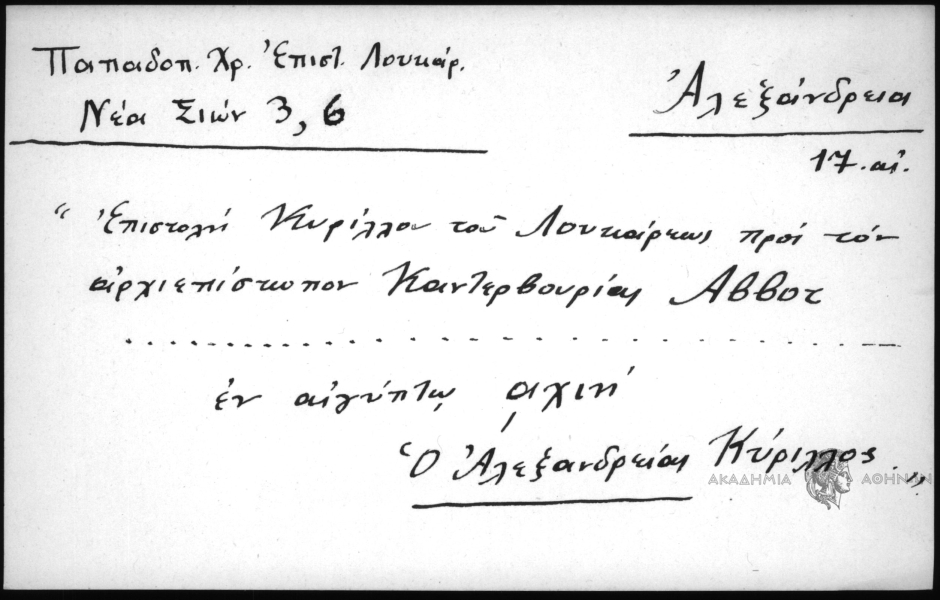 Παπαδοπ. Χρ. Ἐπιστ. Λουκάρ.
Νέα Σιών 3, 6
Ἀλεξάνδρεια
17. αἰ.
“ Ἐπιστολή Κυρίλλου τοῦ Λουκάρεως πρός τόν
ἀρχιεπίσκοπον Καντερβουρίας Αββοτ
ἐν αἰγύπτῳ ͵αχιηʹ
Ὁ Ἀλεξανδρείας Κύριλλος .”
ΑΚΑΔΗΜΙΑ ΑΘΗΝΩΝ